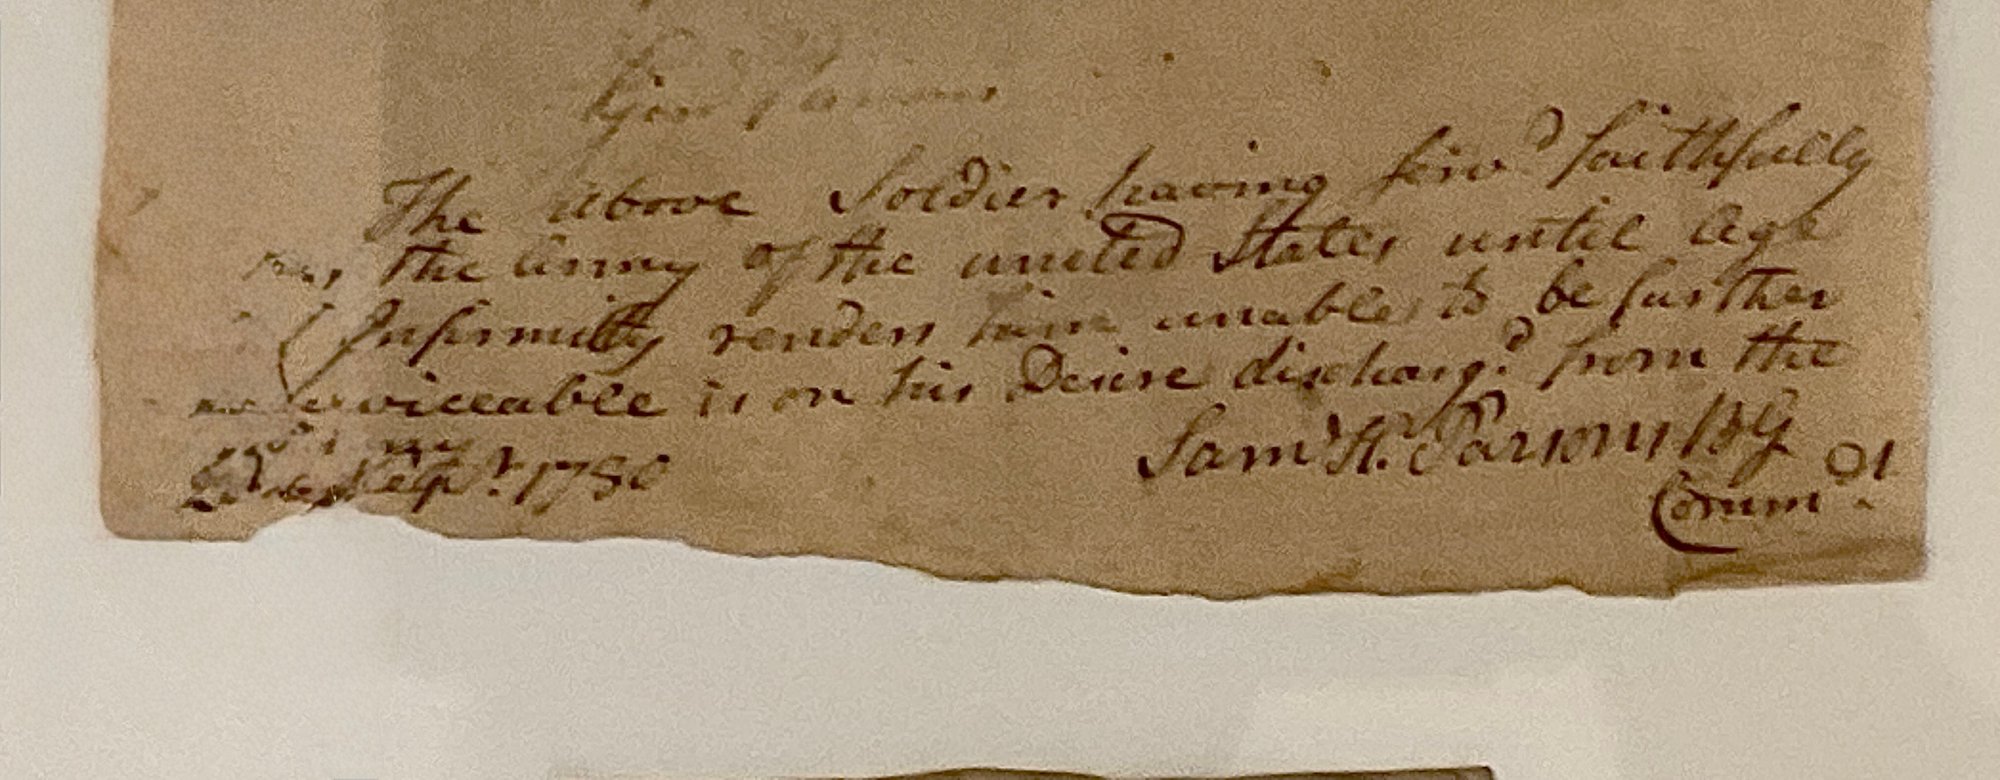 Genl Parsons
The above Soldier having serv'd faithfully
the Army of the united States until Age
Infirmity renders him unable to be further
serviceable is on his Desire discharg'd from the
Army
Sepr. 1780
Saml H. Parsons BG
Commdt